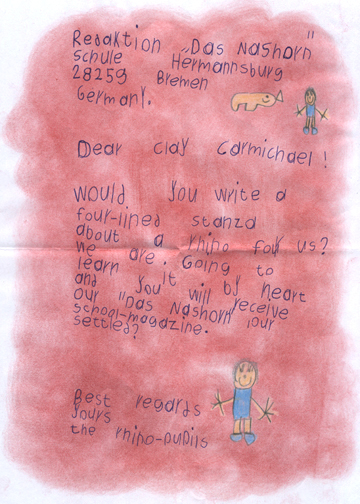 Redaktion „Das Nashorn"
Schule Hermannsburg
28259 Bremen
Germany.
Dear Clay Carmichael!
Would you write a
four-lined stanza
about a rhino for us?
We are. Going to
learn it by heart
and you will receive
our "Das Nashorn" our
school-magazine.
settled?
Best regards
yours
the rhino-pupils